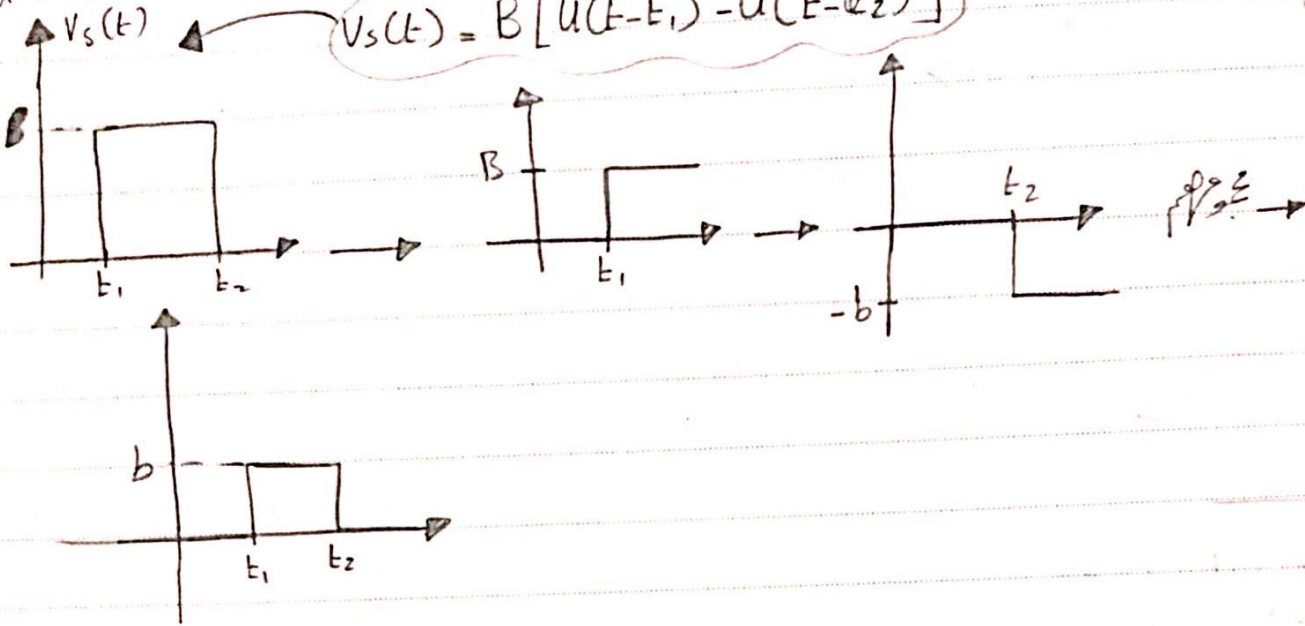 Vs(t)
Vs(t) = B[u(t-t₁) - u(t-t₂)]
B
t₁
t₂
B
t₁
t₂
-b
b
t₁
t₂